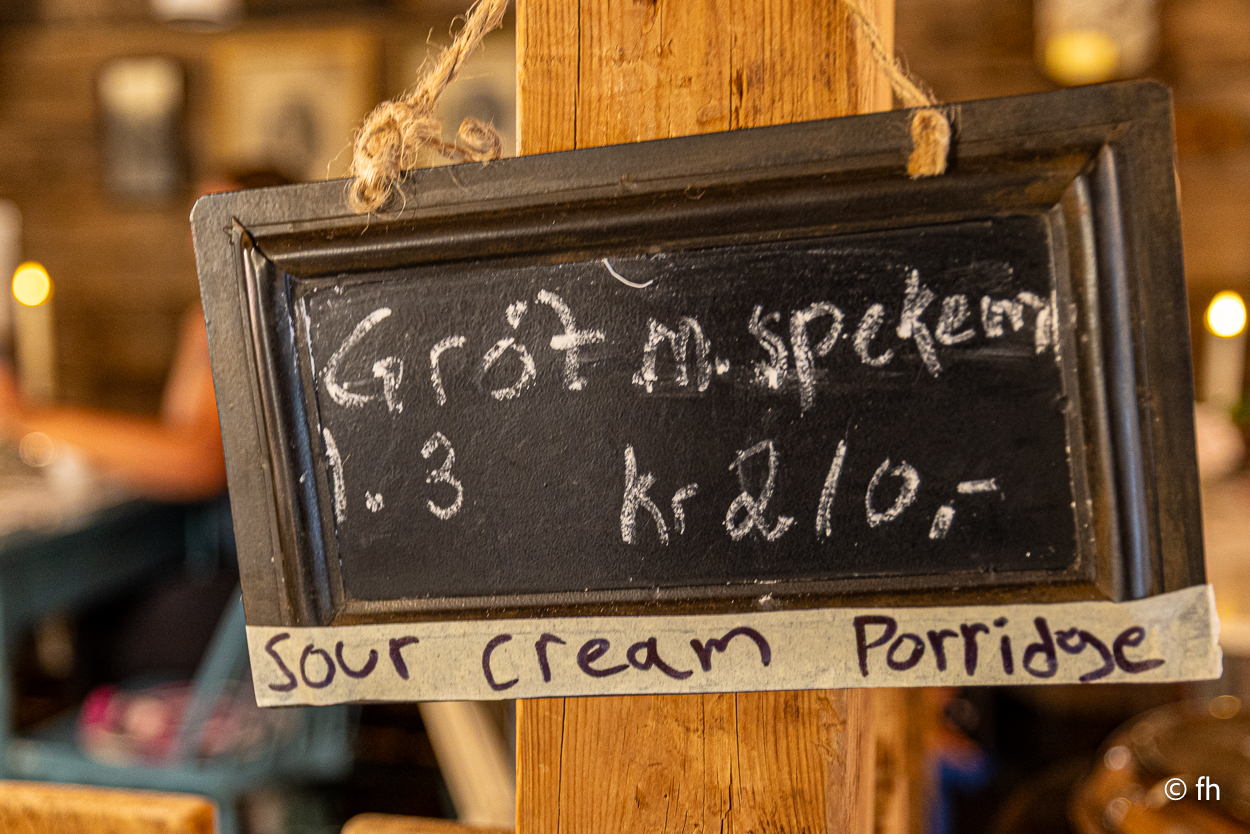 Gröt m. spekem
1. 3 kr 210,-
Sour Cream Porridge
© fh